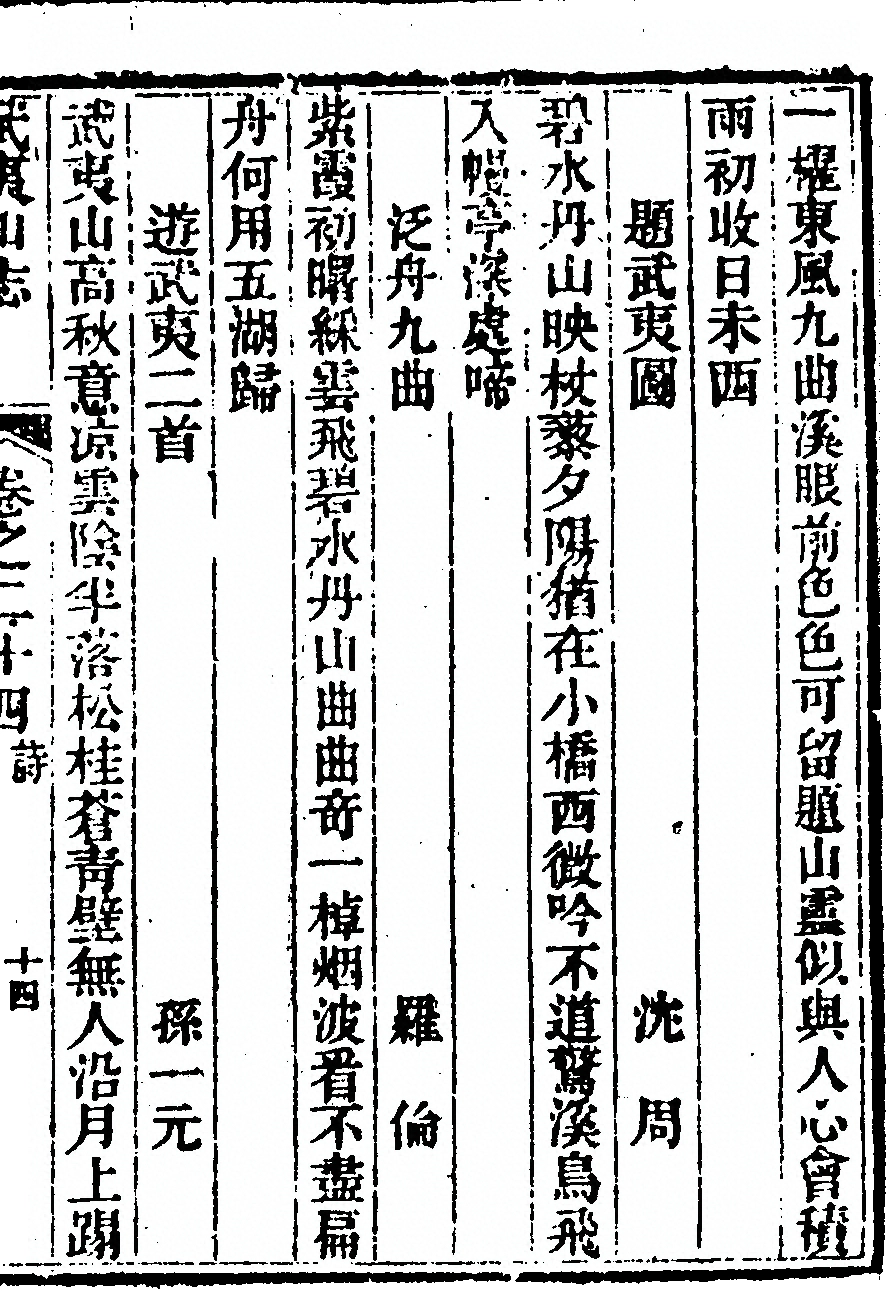 一櫂東風九曲溪眼前色色可留題山靈似與人心會積
雨初收日未西
題武夷圖 沈周
碧水丹山映杖藜夕陽猶在小橋西微吟不道驚溪鳥飛
入幔亭深處啼
泛舟九曲 羅倫
紫霞初曙綵雲飛碧水丹山曲曲奇一棹烟波看不盡扁
舟何用五湖歸
遊武夷二首 孫一元
武夷山高秋意凉雲陰半落松桂蒼青壁無人沿月上踢
武夷山志 卷之二十四 詩 十四